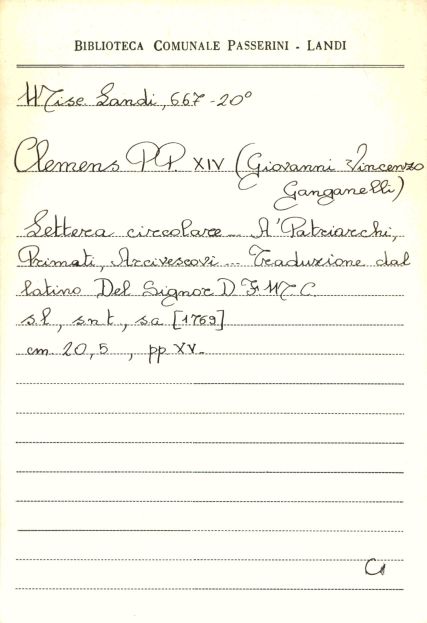 BIBLIOTECA COMUNALE PASSERINI - LANDI
Misc. Landi, 667 - 20°
Clemens PP. XIV (Giovanni Vincenzo
Ganganelli)
Lettera circolare... A' Patriarchi,
Primati, Arcivescovi... Traduzione dal
latino Del Signor D F. M C.
s.l., s.n.t., s.a [1769]
cm. 20,5 , pp. XV.